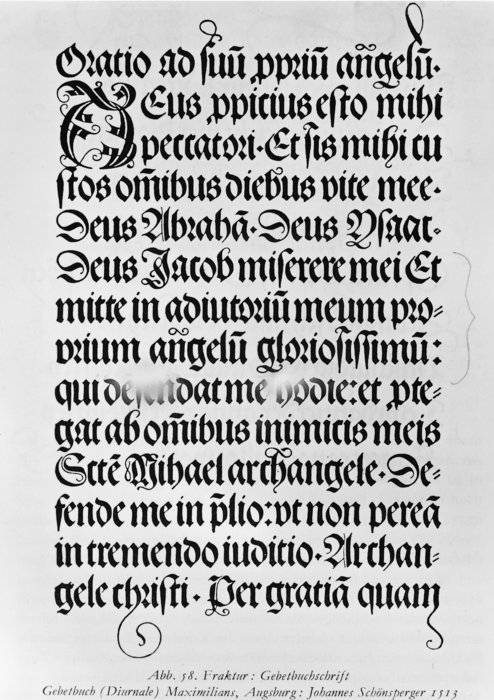 Oratio ad ſuū ꝓpriū an̄gelū.
DEus ꝓpicius eſto mihi
peccatori. Et ſis mihi cu
ſtos om̄ibus diebus vite mee.
Deus Abrahā. Deus Yſaac.
Deus Jacob miſerere mei Et
mitte in adiutoriū meum pro⸗
prium an̄gelū glorioſiſſimū:
qui defendat me hodie: et ꝓte⸗
gat ab om̄ibus inimicis meis
Sctē Mihael archangele. De⸗
fende me in p̄lio: vt non pereā
in tremendo iuditio. Archan⸗
gele chriſti. Per gratiā quam
Abb. 58. Fraktur: Gebetbuchschrift
Gebetbuch (Diurnale) Maximilians, Augsburg: Johannes Schönsperger 1513